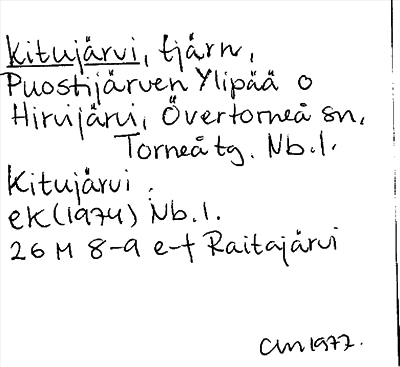 Kitujärvi, tjärn,
Puostijärven Ylipää o
Hirvijärvi, Övertorneå sn,
Torneå tg. Nb.l.
Kitujärvi.
ek (1974) Nb.l.
26 M 8-9 e-f Raitajärvi
CM 1977.